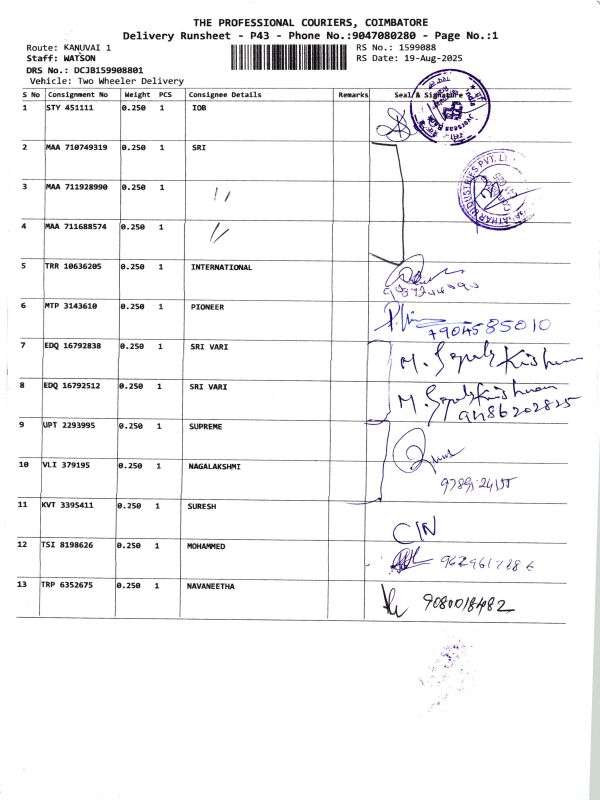 THE PROFESSIONAL COURIERS, COIMBATORE
Delivery Runsheet - P43 - Phone No.:9047080280 - Page No.:1
Route: KANUVAI 1
RS No.: 1599088
Staff: WATSON
RS Date: 19-Aug-2025
DRS No.: DCJB159908801
Vehicle: Two Wheeler Delivery
S No Consignment No Weight PCS Consignee Details Remarks Seal & Signature
1 STY 451111 0.250 1 IOB
2 MAA 710749319 0.250 1 SRI
3 MAA 711928990 0.250 1 "
4 MAA 711688574 0.250 1 "
5 TRR 10636205 0.250 1 INTERNATIONAL
6 MTP 3143610 0.250 1 PIONEER
+904585010
7 EDQ 16792838 0.250 1 SRI VARI M. Gopala Krishnan
8 EDQ 16792512 0.250 1 SRI VARI M. Gopala Krishnan
9486202825
9 UPT 2293995 0.250 1 SUPREME
10 VLI 379195 0.250 1 NAGALAKSHMI
11 KVT 3395411 0.250 1 SURESH
C/N
12 TSI 8198626 0.250 1 MOHAMMED
13 TRP 6352675 0.250 1 NAVANEETHA 9080018482